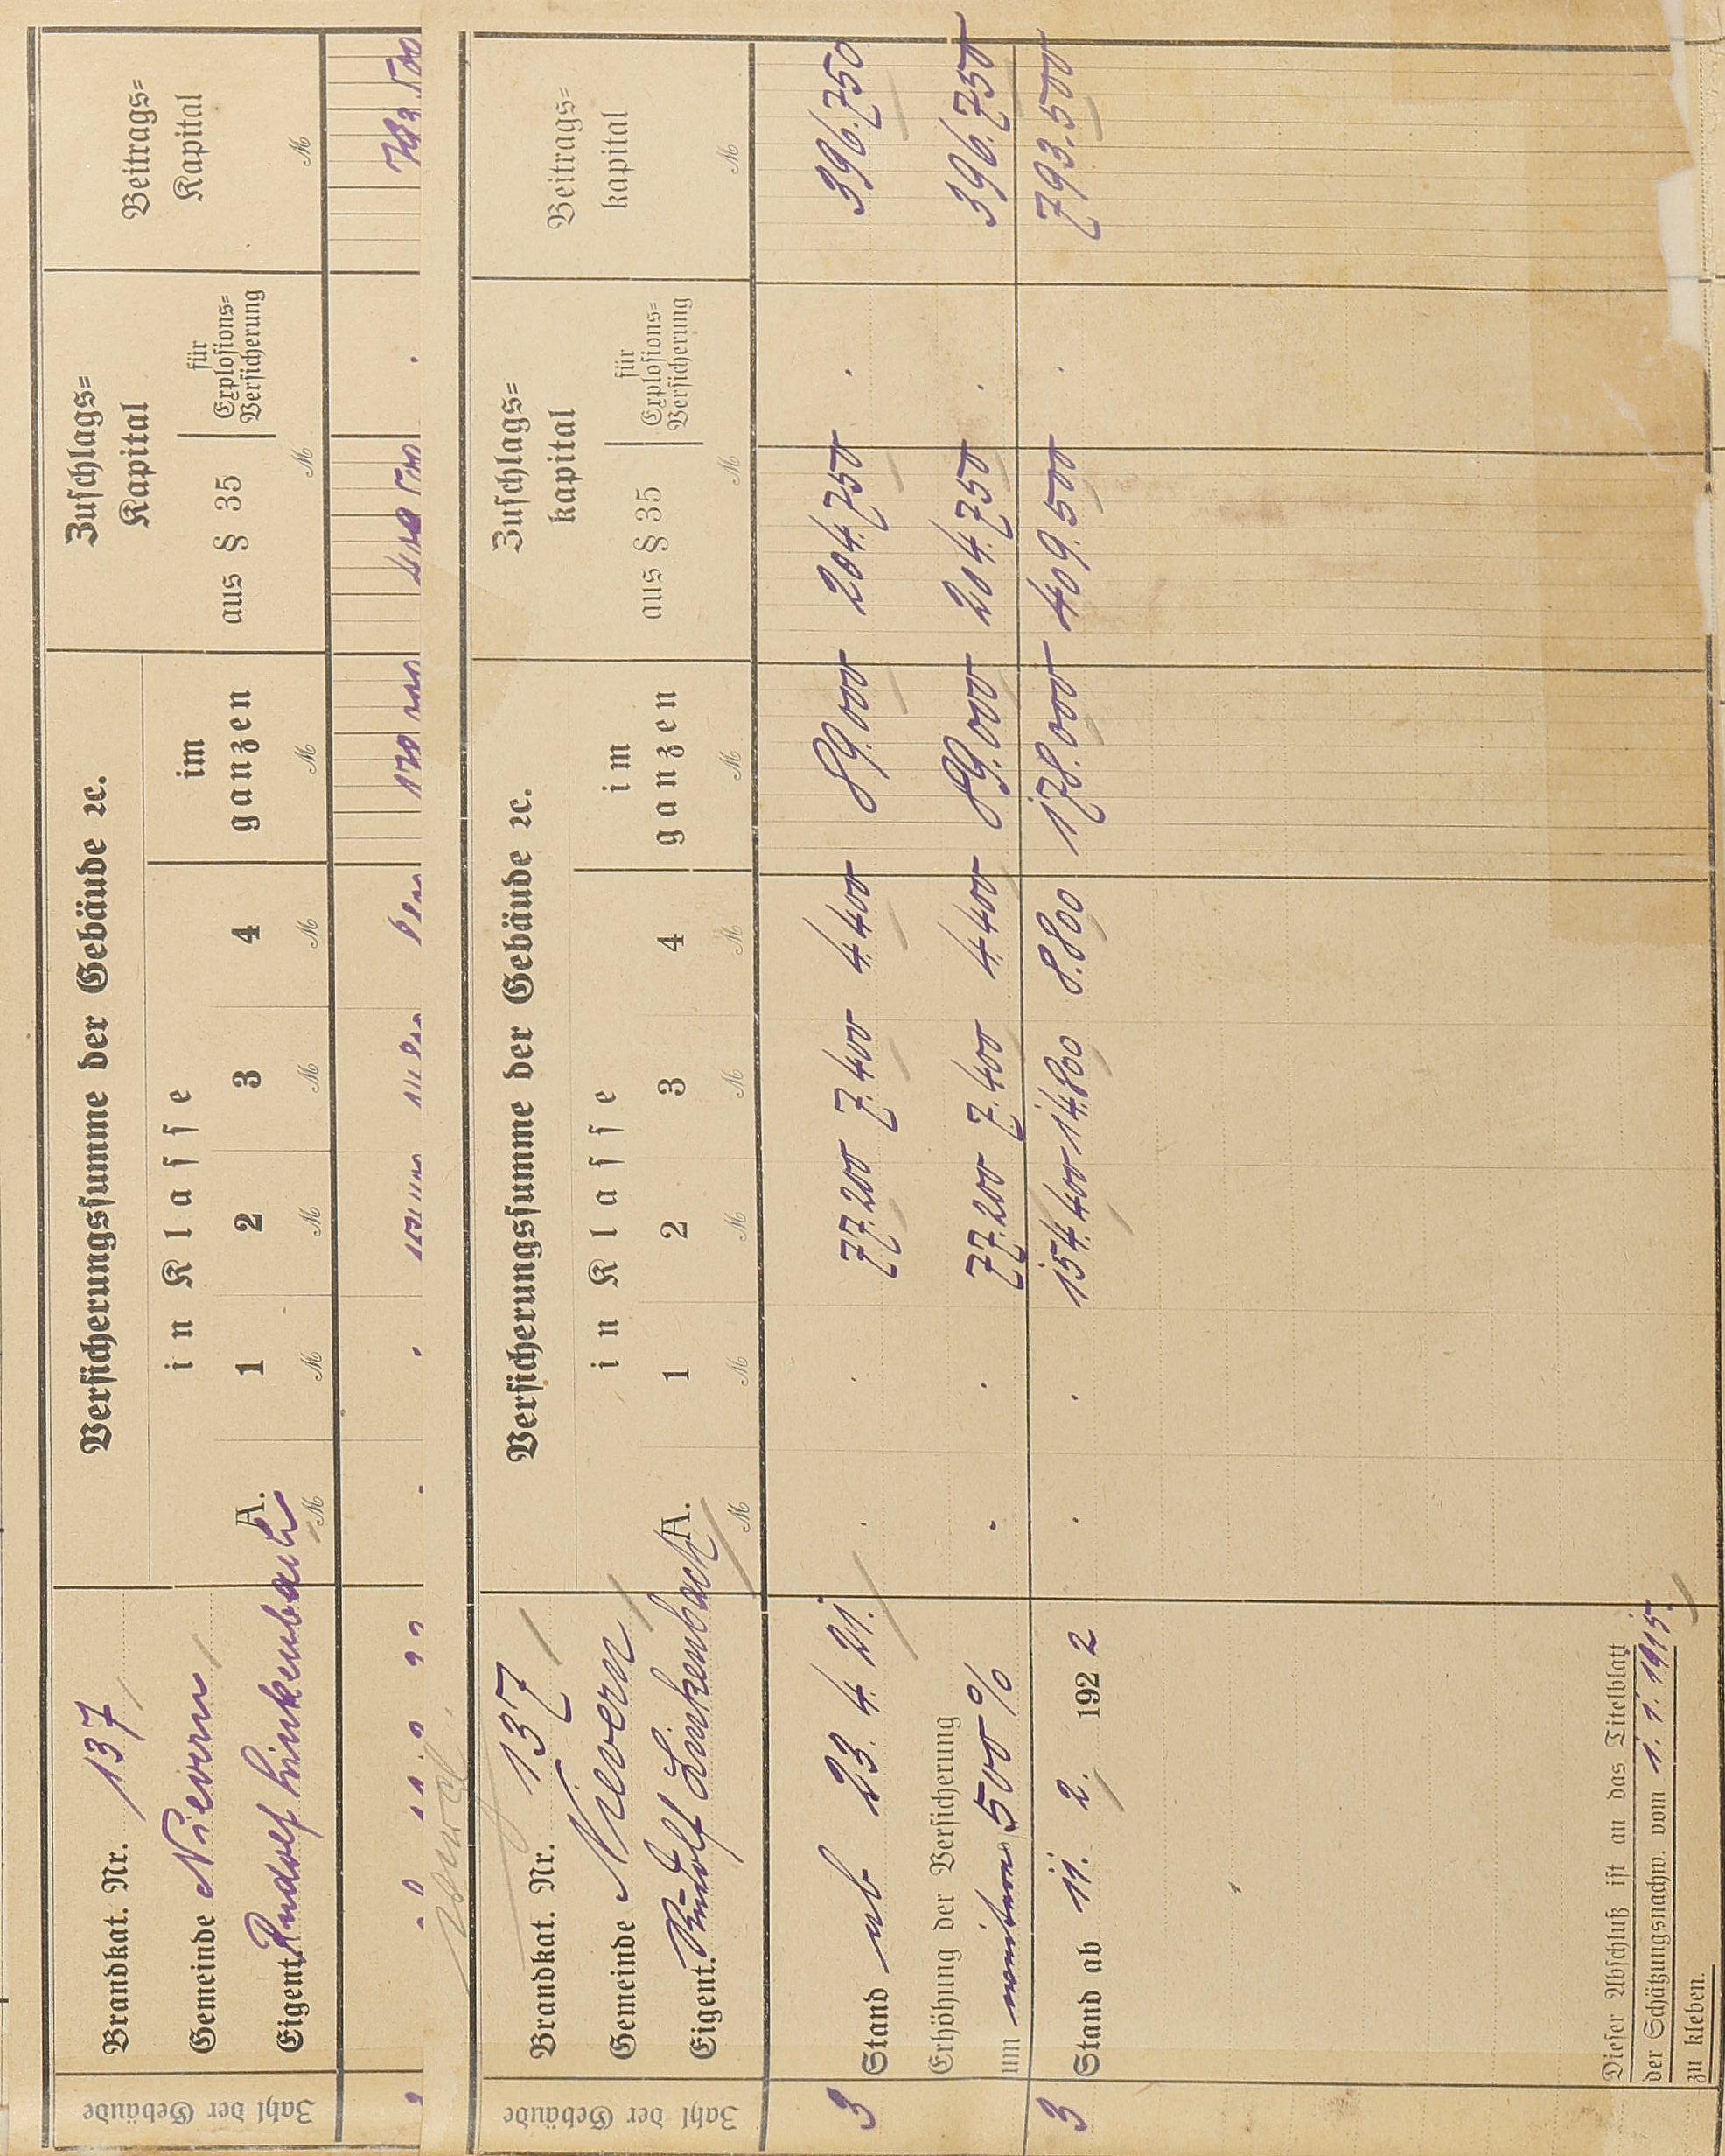 Zahl der Gebäude
Brandkat. Nr. 137
Gemeinde Nievern
Eigent. Rudolf Linkenbach
Versicherungssumme der Gebäude ꝛc.
in Klasse
A. 1 2 3 4
im ganzen
ℳ ℳ ℳ ℳ ℳ ℳ
Zuschlags=
Kapital
aus § 35
für
Explosions=
Versicherung
ℳ
Beitrags=
Kapital
ℳ
Zahl der Gebäude
Brandkat. Nr. 137
Gemeinde Nievern
Eigent. Rudolf Linkenbach
Versicherungssumme der Gebäude ꝛc.
in Klasse
A. 1 2 3 4
im
ganzen
ℳ ℳ ℳ ℳ ℳ ℳ
Zuschlags=
kapital
aus § 35
für
Explosions=
Versicherung
ℳ
Beitrags=
kapital
ℳ
3 Stand ab 23. 4. 21. . . 77.200 7.400 4.400 89.000 204.750 . 396.750
Erhöhung der Versicherung
um weitere 500 % . . 77.200 7.400 4.400 89.000 204.750 . 396.750
3 Stand ab 11. 2. 1922 . . 154.400 14.800 8.800 178.000 409.500 . 793.500
Dieser Abschluß ist an das Titelblatt
der Schätzungsnachw. vom 1. 1. 1915.
zu kleben.